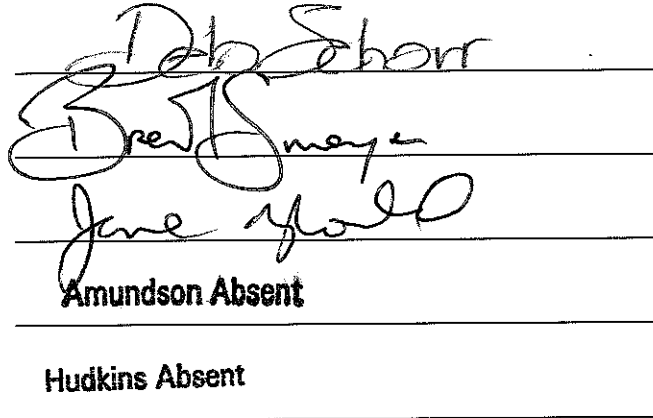 Deb Schorr
Brent Smoyer
Jane Raybould
Amundson Absent
Hudkins Absent